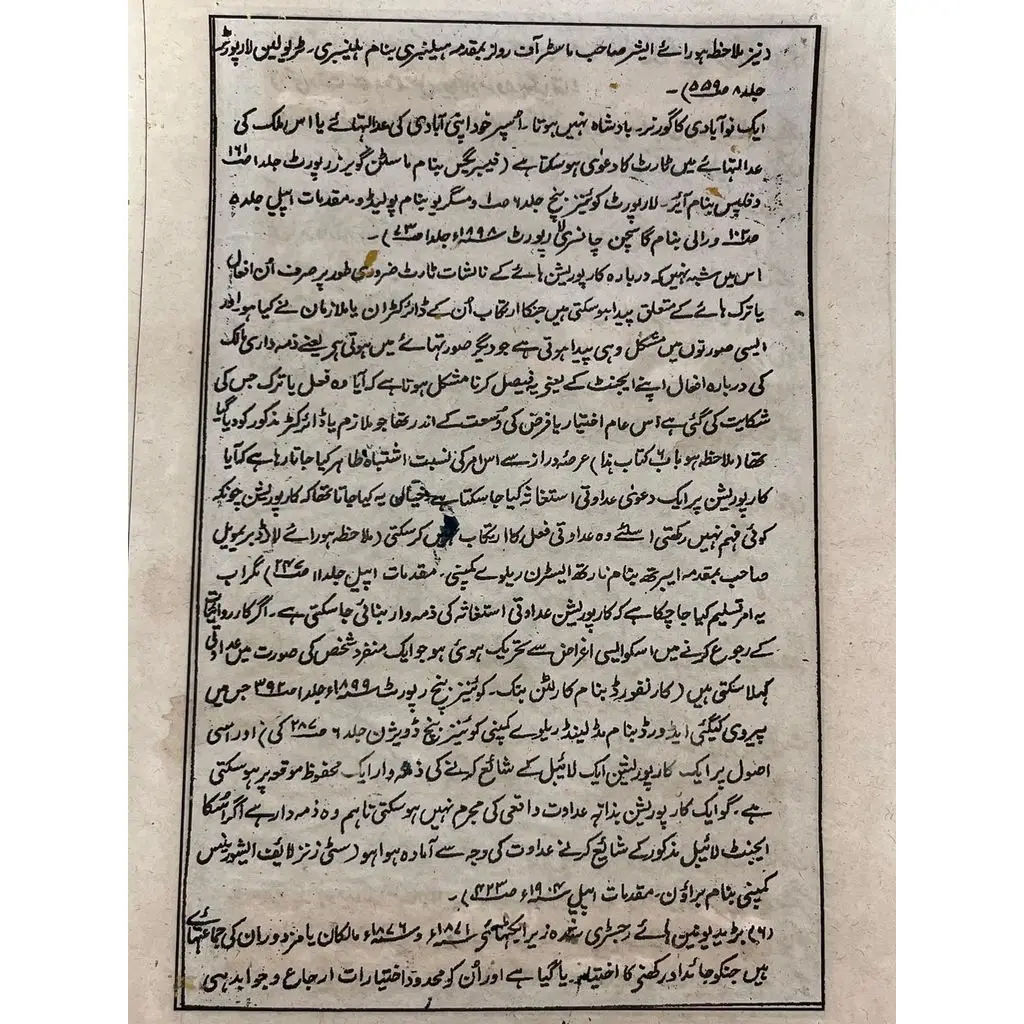 (نیز ملاحظہ ہو رائے ایشر صاحب ماسٹر آف رولز بمقدمہ ہیلنبری بنام ہلینبری۔ ٹریولین لارپورٹس
جلد ۸ صـ ۵۵۹)۔
ایک نو آبادی کا گورنر۔ بادشاہ نہیں ہوتا۔ اُسپر خود اپنی آبادی کی عدالتہائے یا اس ملک کی
عدالتہائے میں ٹارٹ کا دعویٰ ہو سکتا ہے (فیبریگس بنام ماسٹن کوپرز رپورٹ جلد ۱ صـ ۱۶۱
و فلپس بنام آئیر۔ لارپورٹ کوئینز بنچ جلد ۶ صـ ۱ و مسگریو بنام پولیڈو۔ مقدمات اپیل جلد ۵
صـ ۱۰۲ و رالی بنام گاسچن چانسری لا رپورٹ ۱۸۹۸ء جلد ۱ صـ ۷۳)۔
اس میں شبہ نہیں کہ دربارہ کارپوریشن ہائے کے نالشات ٹارٹ ضروری طور پر صرف اُن افعال
یا ترک ہائے کے متعلق پیدا ہو سکتی ہیں جنکا ارتکاب اُن کے ڈائرکٹران یا ملازمان نے کیا ہو اور
ایسی صورتوں میں مشکل وہی پیدا ہوتی ہے جو دیگر صورتہائے میں ہوتی ہے یعنے ذمہ داری مالک
کی دربارہ افعال اپنے ایجنٹ کے یعنی یہ فیصل کرنا مشکل ہوتا ہے کہ آیا وہ فعل یا ترک جس کی
شکایت کی گئی ہے اس عام اختیار یا فرض کی وسعت کے اندر تھا جو ملازم یا ڈائرکٹر مذکور کو دیا گیا
تھا (ملاحظہ ہو باب ۶ کتاب ہذا) عرصۂ دراز سے اس امر کی نسبت اشتباہ ظاہر کیا جاتا رہا ہے کہ آیا
کارپوریشن پر ایک دعویٰ عداوتی استغاثہ کیا جا سکتا ہے خیال یہ کیا جاتا تھا کہ کارپوریشن چونکہ
کوئی فہم نہیں رکھتی اسلئے وہ عداوتی فعل کا ارتکاب نہیں کر سکتی (ملاحظہ ہو رائے لارڈ بریمویل
صاحب بمقدمہ ایبرتھ بنام نارتھ ایسٹرن ریلوے کمپنی۔ مقدمات اپیل جلد ۱۱ صـ ۲۴۷) مگر اب
یہ امر تسلیم کیا جا چکا ہے کہ کارپوریشن عداوتی استغاثہ کی ذمہ وار بنائی جا سکتی ہے۔ اگر کارروائیات
کے رجوع کرنے میں اسکو ایسی اغراض سے تحریک ہوئی ہو جو ایک منفرد شخص کی صورت میں عداوتی
کہلا سکتی ہیں (کارنفورڈ بنام کارلٹن بنک۔ کوئینز بنچ رپورٹ ۱۸۹۹ء جلد ۱ صـ ۳۹۲ جس میں
پیروی کیگئی ایڈورڈ بنام مڈلینڈ ریلوے کمپنی کوئینز بنچ ڈویژن جلد ۶ صـ ۲۸۷ کی) اور اسی
اصول پر ایک کارپوریشن ایک لائیبل کے شائع کرنے کی ذمہ وار ایک محفوظ موقع پر ہو سکتی
ہے۔ گو ایک کارپوریشن بذاتہ عداوت واقعی کی مجرم نہیں ہو سکتی تاہم وہ ذمہ دار ہے اگر اُسکا
ایجنٹ لائیبل مذکور کے شائع کرنے عداوت کی وجہ سے آمادہ ہوا ہو (سٹی زنز لائف ایشورینس
کمپنی بنام براؤن۔ مقدمات اپیل ۱۹۰۴ء صـ ۴۲۳)۔
(۶) ٹریڈ یونین ہائے رجسٹری شدہ زیر ایکٹہائے ۱۸۷۱ء و ۱۸۷۶ء مالکان یا مزدوران کی جماعتہائے
ہیں جنکو جائداد رکھنے کا اختیار دیا گیا ہے اور اُن کو محدود اختیارات ارجاع و جوابدہی